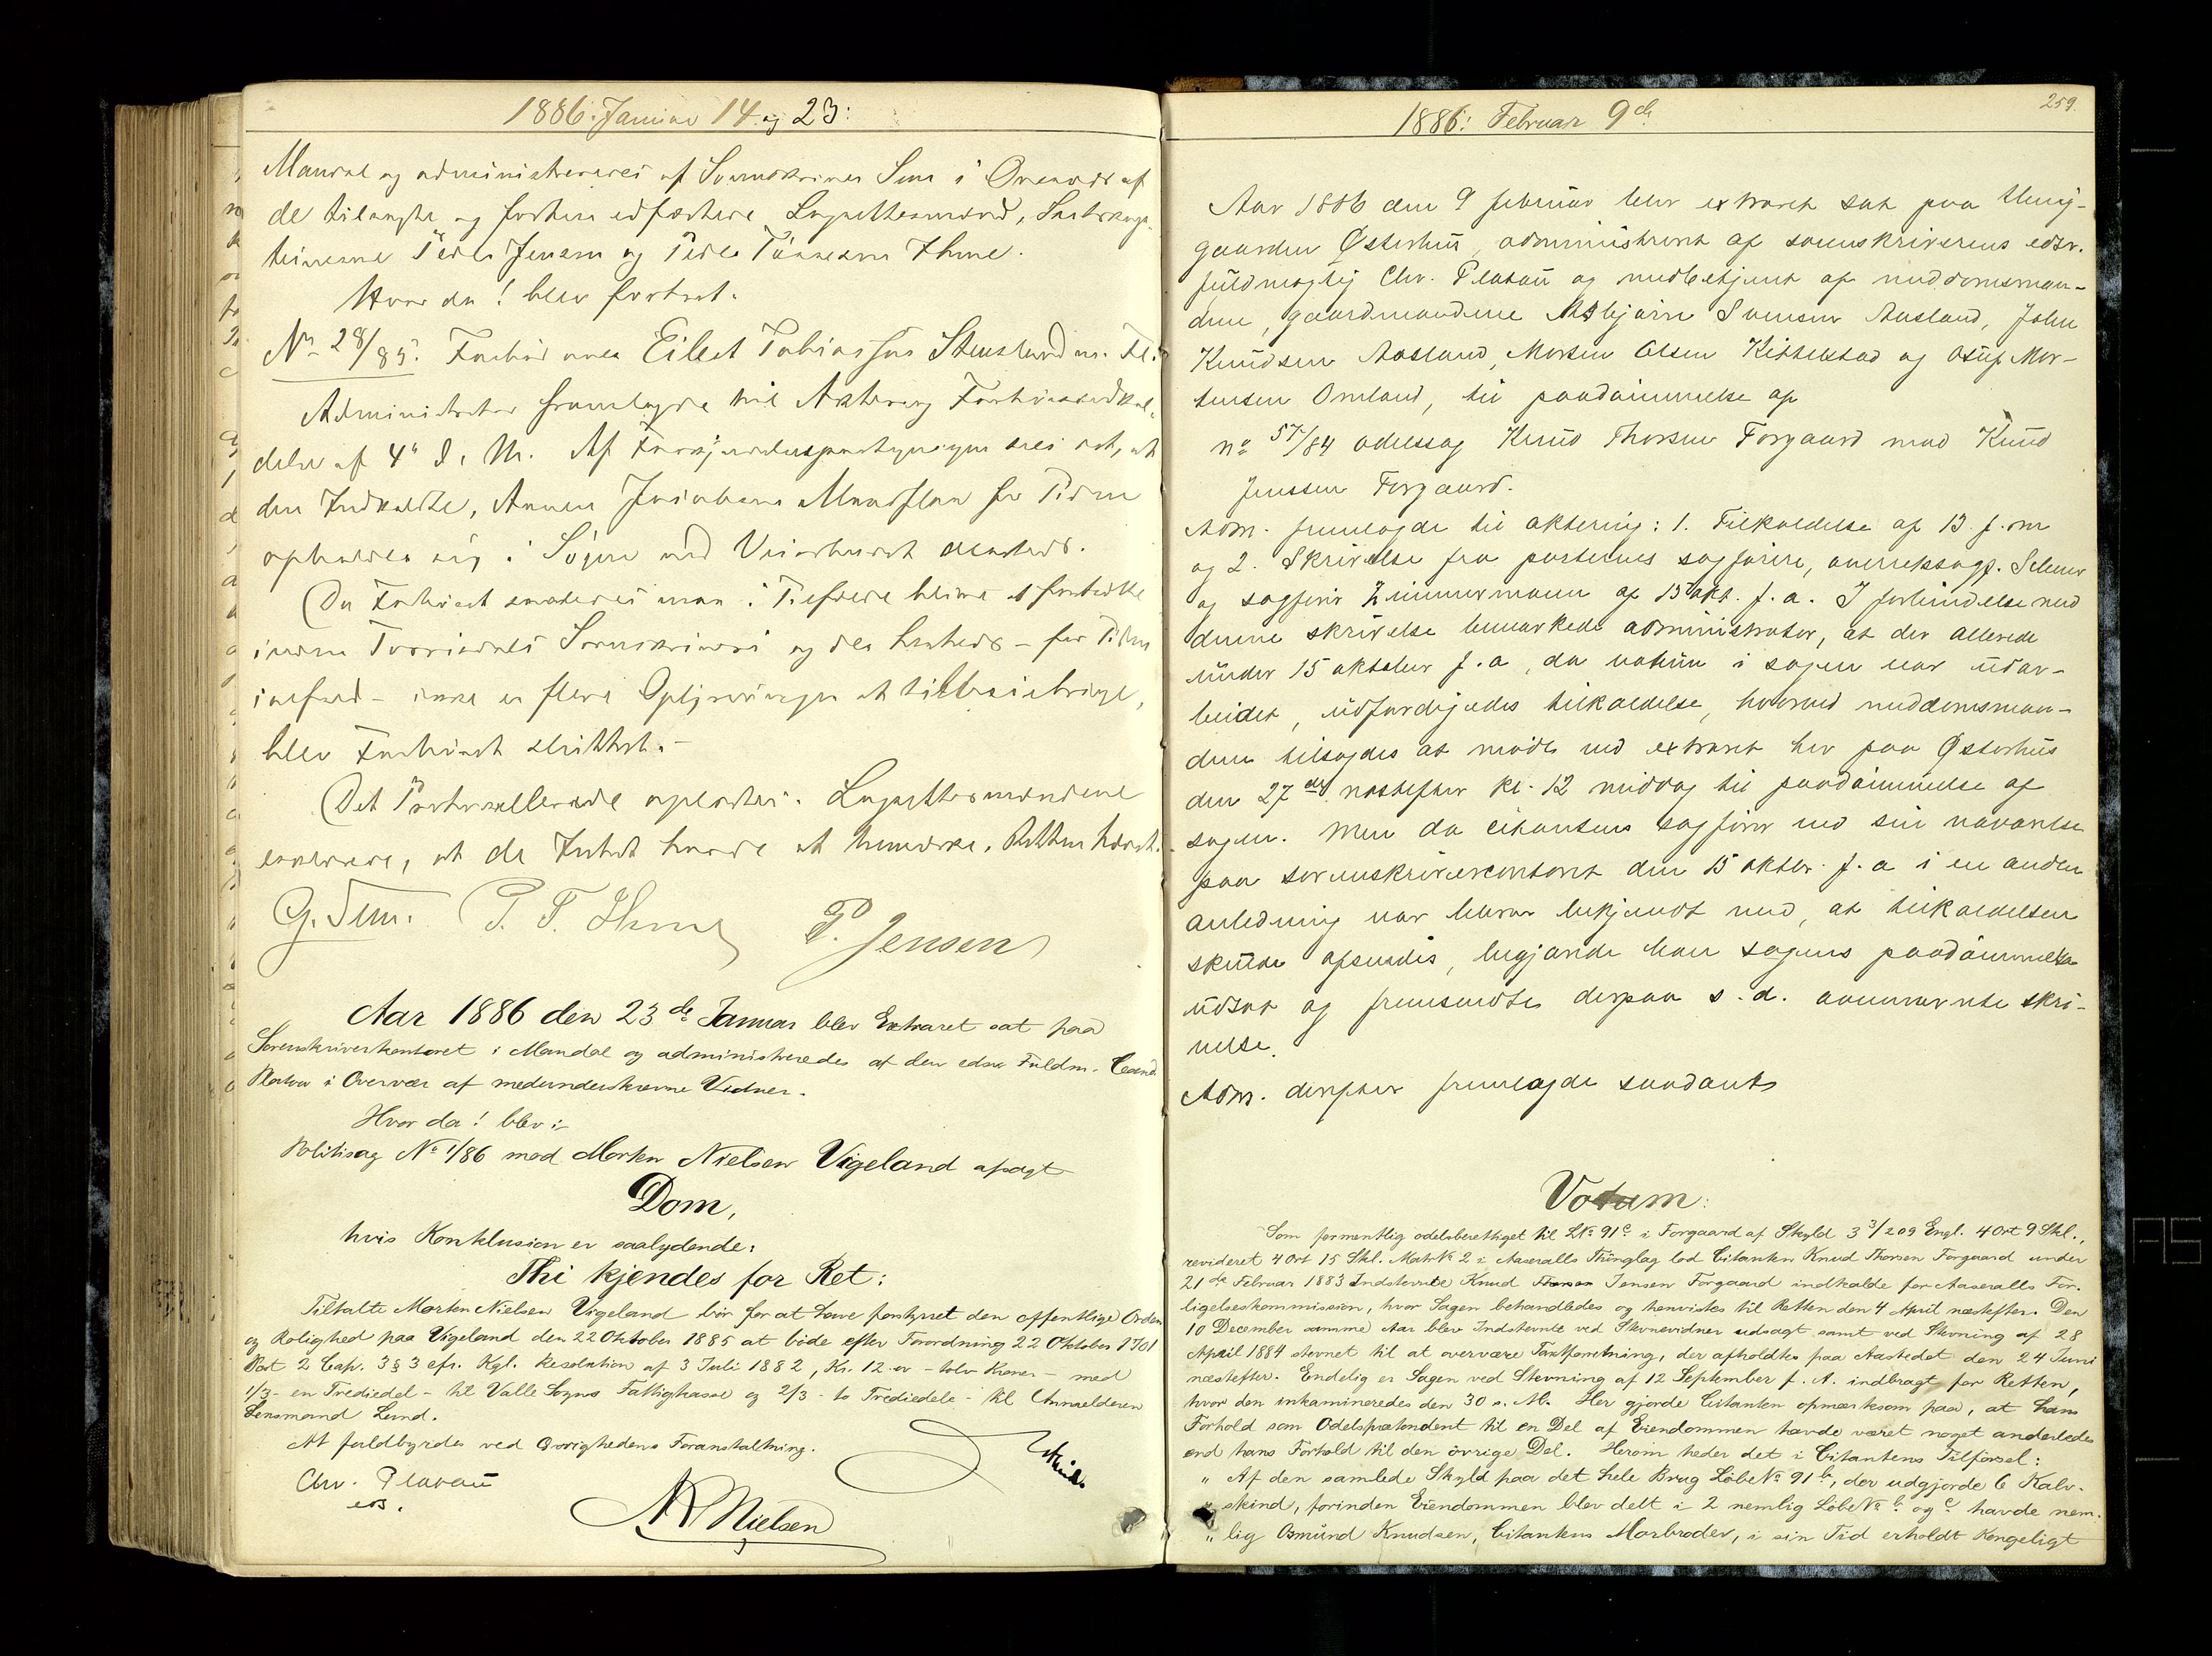 1886: Januar 14 og 23:
Mandal og administreredes af Sorenskriver Sem i Overvær af
de tilsagte og forhen edfæstede Lagrettesmænd,
Peder Jensen og Peder Tønnesen Ihme.
Hvor da! blev foretaget:
No 28/85. Forhør over Eilert Tobiassen Stensland m. Fl.
Administrator fremlagde til Aktering Forhørsindkal-
delse af 4de d. M. Af Forkyndelsespaategningen sees det, at
den Indkaldte, Anne for Tiden
opholder sig i Søgne
Da Forhøret saaledes
inden Torrisdals Sorenskriveri og der – for Tiden
ialfald – ikke er flere Oplysninger at tilveiebringe,
blev Forhøret sluttet. –
Det Protokollerede oplæstes. Lagrettesmændene
erklærede, at de Intet havde at bemærke. Retten hævet.
G. Sem. P. T. Ihme P. Jensen
Aar 1886 den 23de Januar blev Extraret sat paa
Sorenskriverkontoret i Mandal og administreredes af den edsv. Fuldm. Cand.
Platou i Overvær af medunderskrevne Vidner.
Hvor da! blev i:
Politisag No 1/86 mod Morten Nielsen Vigeland afsagt
Dom,
hvis Konklusion er saalydende:
Thi kjendes for Ret:
Tiltalte Morten Nielsen Vigeland bör for at have forstyrret den offentlige Orden
og Rolighed paa Vigeland den 22 Oktober 1885 at böde efter Forordning 22 Oktober 1701
Post 2 Cap. 3 § 3 cfr. Kgl. Resolution af 3 Juli 1882, Kr. 12.00 – tolv Kroner – med
1/3 – en Trediedel – til Valle Sogns Fattigkasse og 2/3 – to Trediedele – til Anmelderen
Lensmand Lund.
At fuldbyrdes ved Øvrighedens Foranstaltning.
Chr. Platou
eds.
N Nielsen
259.
1886: Februar 9de
Aar 1886 den 9 februar blev extraret sat paa thing-
gaarden Østerhus, administreret af sorenskriverens edsv.
fuldmægtig Chr. Platou og medbetjent af meddomsmæn-
dene, gaardmændene Asbjørn Svensen Aasland, John
Knudsen Aasland, Morten Olsen Kittelstad og Osuf Mor-
tensen Omland, til paadømmelse af
no 57/84 odelssag Knud Thorsen Forgaard mod Knud
Jenssen Forgaard.
Adm. fremlagde til aktering: 1. Tilkaldelse af 13. f. m
og 2. Skrivelse fra parternes sagførere, overretssagf. Selmer
og sagfører Zimmermann af 15 okt. f. a. I forbindelse med
denne skrivelse bemærkede administrator, at der allerede
under 15 oktober f. a, da votum i sagen var udar-
beidet, udfærdigedes tilkaldelse, hvorved meddomsmæn-
dene tilsagdes at møde ved extraret her paa Østerhus
den 27de næstefter kl. 12 middag til paadømmelse af
sagen. Men da citantens sagfører ved sin nærværelse
paa sorenskrivercontoret den 15 oktbr. f. a i en anden
anledning var bleven bekjendt med, at tilkaldelsen
skulde afsendes, begjærede han sagens paadømmelse
udsat og fremsendtes derpaa s. d. omnævnte skri-
velse.
Adm. derefter fremlagde saadant
Votum:
Som formentlig odelsberettiget til LNo 91c i Forgaard af Skyld 3 3/209 Engl. 4 Ort 9 Skl.,
revideret 4 Ort 15 Skl. Matr No 2 i Aaseralls Thinglag lod Citanten Knud Thorsen Forgaard under
21de Februar 1883 Indstevnte Knud Jensen Forgaard indkalde for Aaseralls For-
ligelseskommission, hvor Sagen behandledes og henvistes til Retten den 4 April næstefter. Den
10 December samme Aar blev Indstevnte ved Stevnevidner udsagt samt ved Stevning af 28
April 1884 stevnet til at overvære Taxtforretning, der afholdtes paa Aastedet den 24 Juni
næstefter. Endelig er Sagen ved Stevning af 12 September f. A. indbragt for Retten,
hvor den inkamineredes den 30 s. M. Her gjorde Citanten opmærksom paa, at hans
Forhold som Odelsprætendent til en Del af Eiendommen havde været noget anderledes
end hans Forhold til den övrige Del. Herom heder det i Citantens Tilförsel:
„ Af den samlede Skyld paa det hele Brug Löbe No 91b, der udgjorde 6 Kalv-
„ skind, forinden Eiendommen blev delt i 2 nemlig Löbe No b og c havde nem-
„ lig Osmund Knudsen, Citantens Morbroder, i sin Tid erholdt Kongeligt